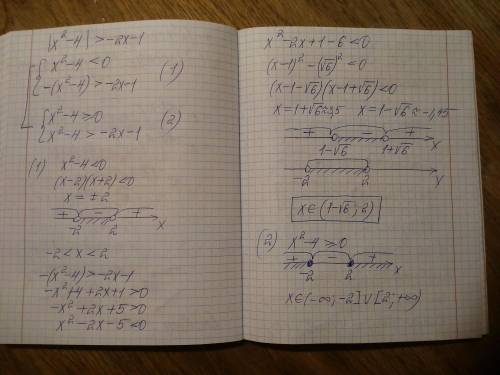 |x²-4| > -2x-1
{ x²-4 < 0
{ -(x²-4) > -2x-1 (1)
{ x²-4 ≥ 0
{ x²-4 > -2x-1 (2)
(1) x²-4 < 0
(x-2)(x+2) < 0
x = ±2
+ - +
-2 2 x
-2 < x < 2
-(x²-4) > -2x-1
-x²+4+2x+1 > 0
-x²+2x+5 > 0
x²-2x-5 < 0
x²-2x+1-6 < 0
(x-1)²-(√6)² < 0
(x-1-√6)(x-1+√6) < 0
x = 1+√6 ≈ 3,5 x = 1-√6 ≈ -1,45
+ - +
1-√6 1+√6 x
-2 2 y
x∈(1-√6; 2)
(2) x²-4 ≥ 0
+ - +
-2 2 x
x∈(-∞; -2]∪[2; +∞)